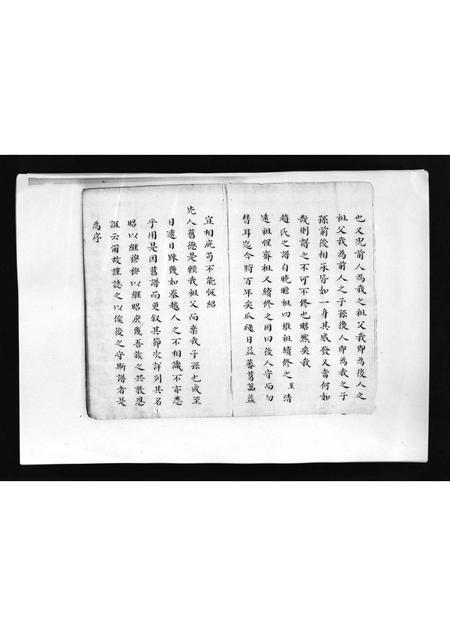 也又况前人為我之祖父我即為後人之
祖父我為前人之子孫後人即為我之子
孫前後相承皆如一身其感發又當何如
哉則譜之不可不修也昭然矣我
趙氏之譜自曉瞻祖四維祖續修之至清
遠祖惺齋祖又續修之囬曰後人守而勿
替耳迄今將百年矣瓜綫日益蕃葛藟益
宜相庇苟不能恢紹
先人舊德是輕我祖父而棄我子孫也或至
日遠日踈幾如秦越人之不相識不亦悲
乎用是因舊譜而更叙其節次詳列其名
昭以繼穆穆以繼昭庶幾吾族之共敦恩
誼云爾故謹誌之以俟後之守斯譜者是
為序